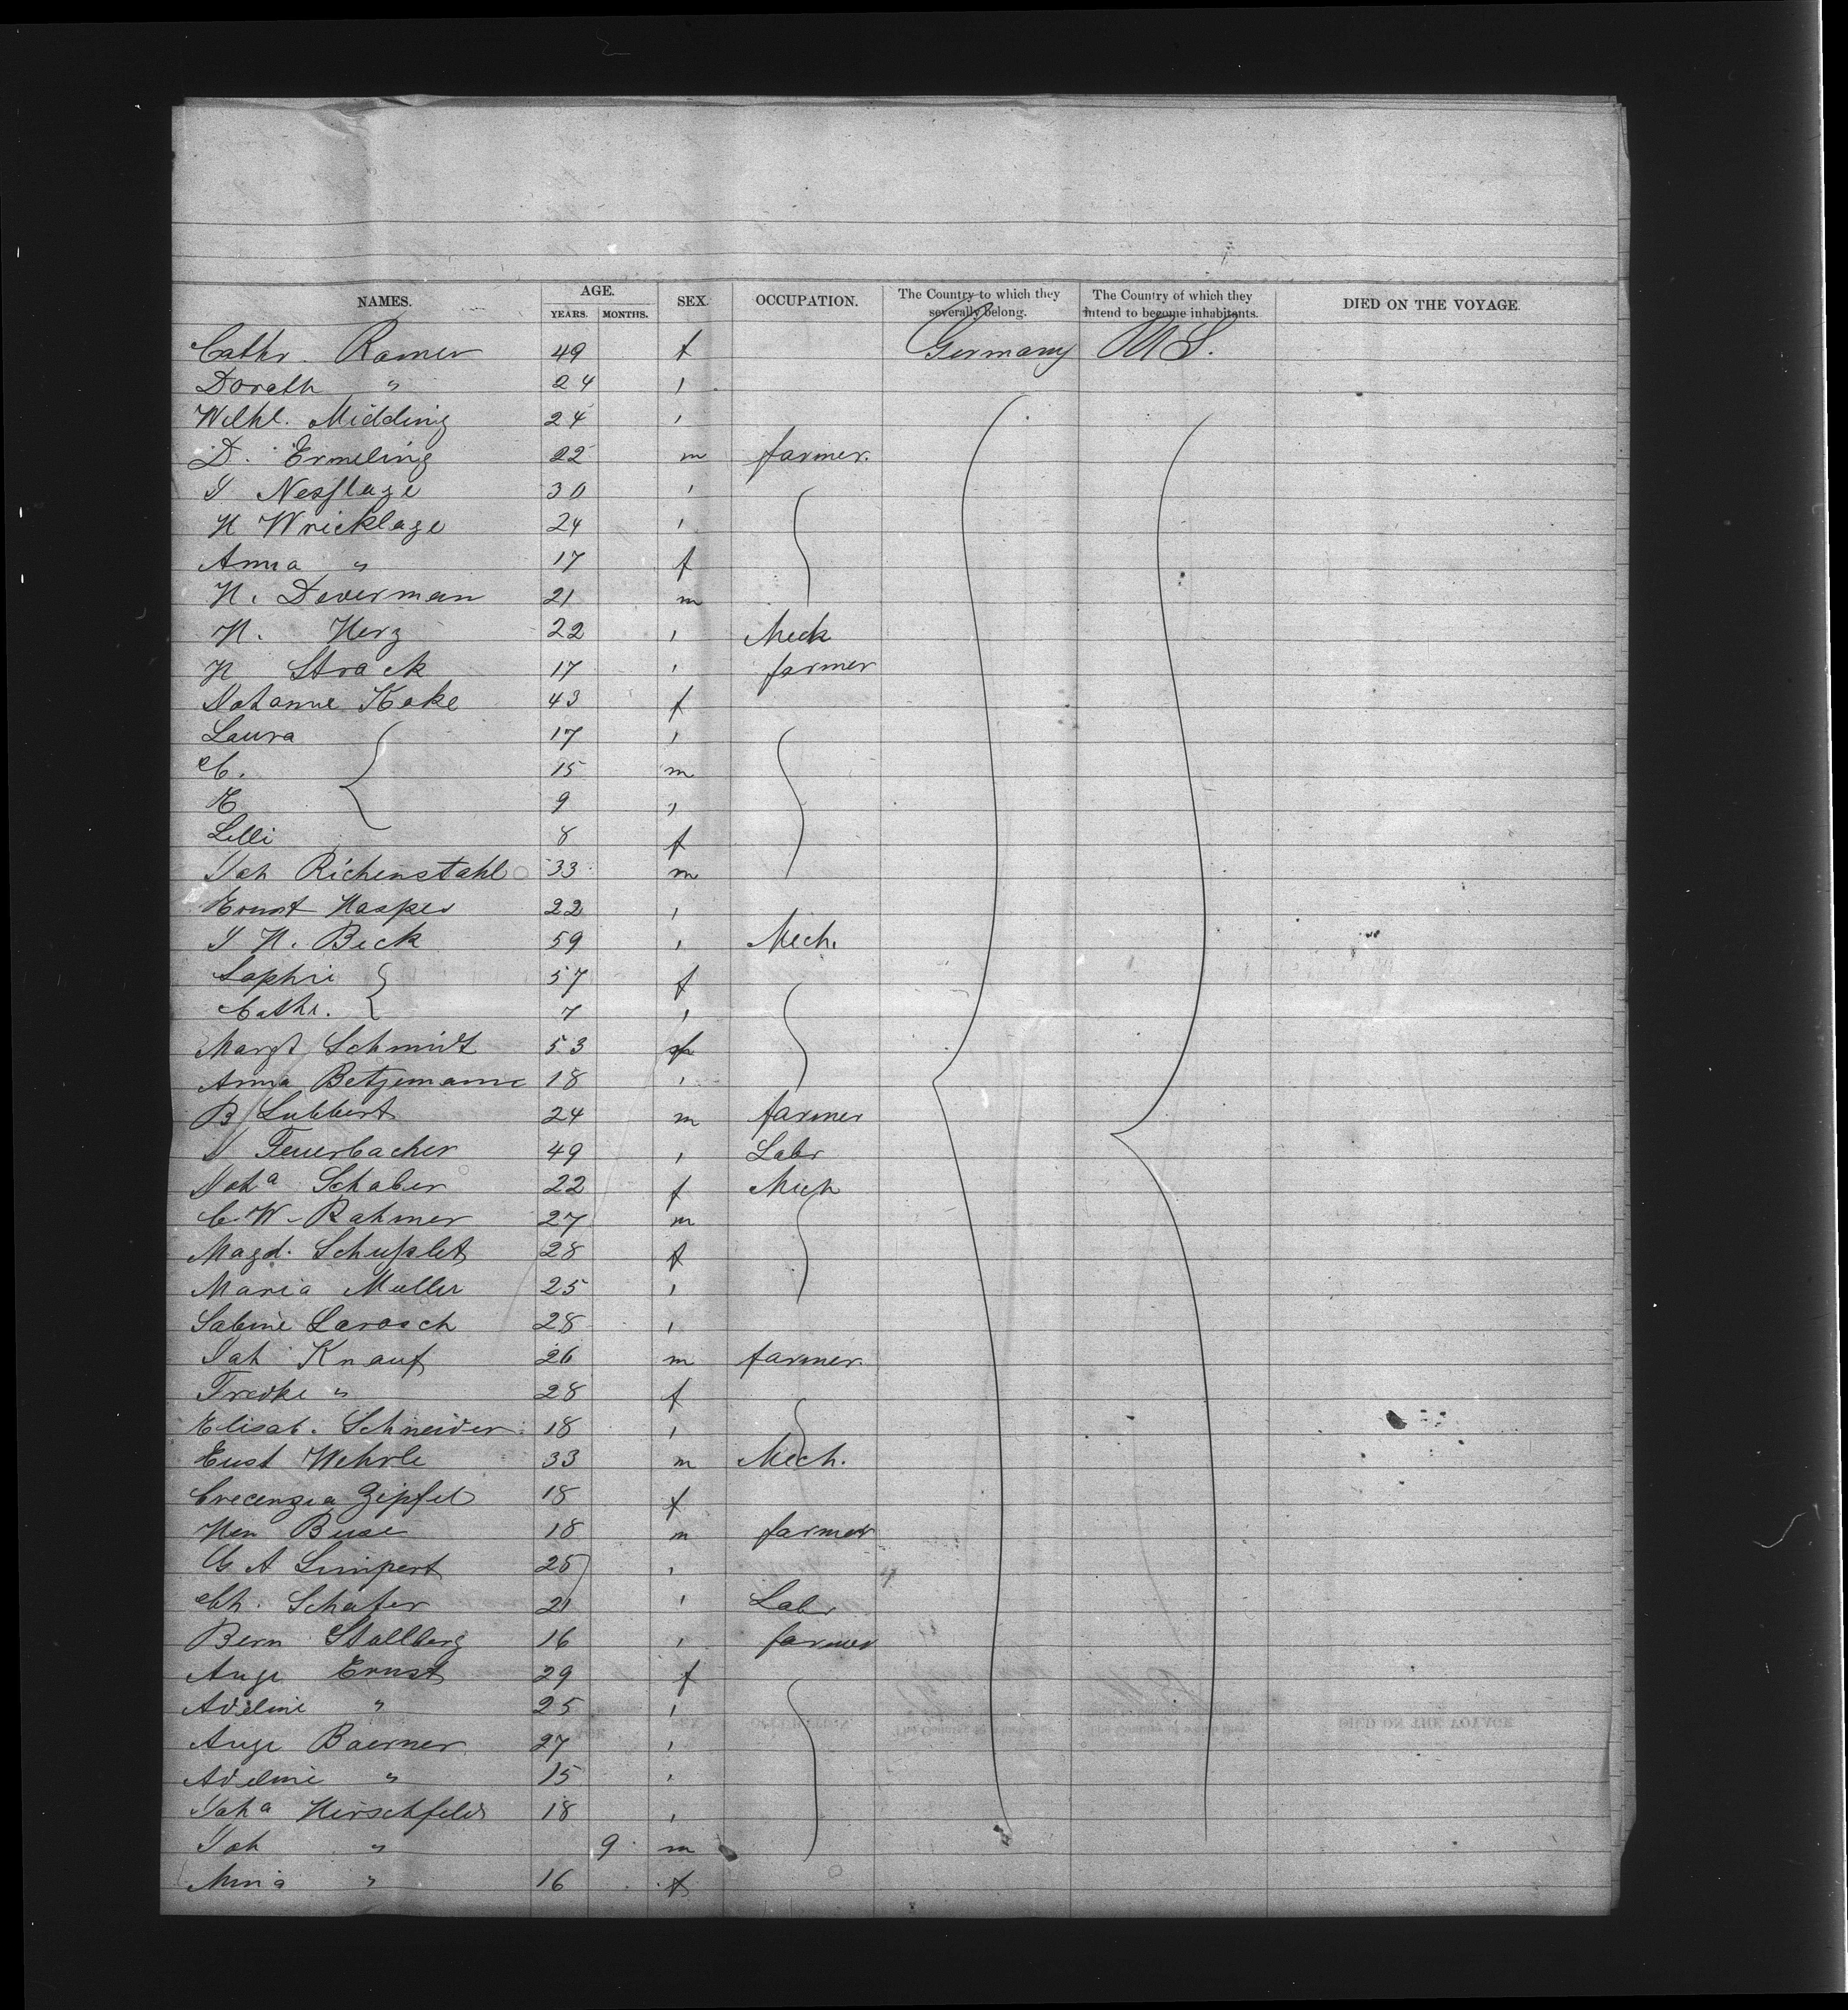 NAMES. AGE. YEARS. MONTHS. SEX. OCCUPATION. The Country to which they severally belong. The Country of which they intend to become inhabitants. DIED ON THE VOYAGE.
Cathr. Ramer 49 f Germany U S.
Dorath " 24 "
Wilhl. Midding 24 "
D. Ermeling 22 m farmer.
J Nesflage 30 "
H Wricklage 24 "
Anna " 17 f
H. Deverman 21 m
H. Herz 22 " Mech
H Strack 17 " farmer
Johanne Koke 43 f
Laura 17 "
C. 15 m
E 9 "
Lilli 8 f
Joh Richenstahl 33 m
Ernst Hasper 22 "
J H. Beck 59 " Mech.
Sophie 57 f
Cathr. 7 "
Margt Schmidt 53 f
Anna Betzemann 18 "
B Lubbert 24 m farmer
J Feuerbacher 49 " Labr
Joha Schaber 22 f Mech
C. W. Rahmer 27 m
Magd. 28 f
Maria Muller 25 "
Sabine Larosch 28 "
Joh Knauf 26 m farmer.
Fredke " 28 f
Elisab. Schneider 18 "
Wehrle 33 m Mech.
Crecenzia Zipfel 18 f
Hen Buse 18 m farmer
G A Limpert 25 "
Ch. Schafer 21 " Labr
Bern Stallberg 16 " farmer
Auge Ernst 29 f
Adeline " 25 "
Auge Baerner 27 "
Adeline " 15 "
Joha Hirschfeld 18 "
Joh " 9 m
Mina " 16 f